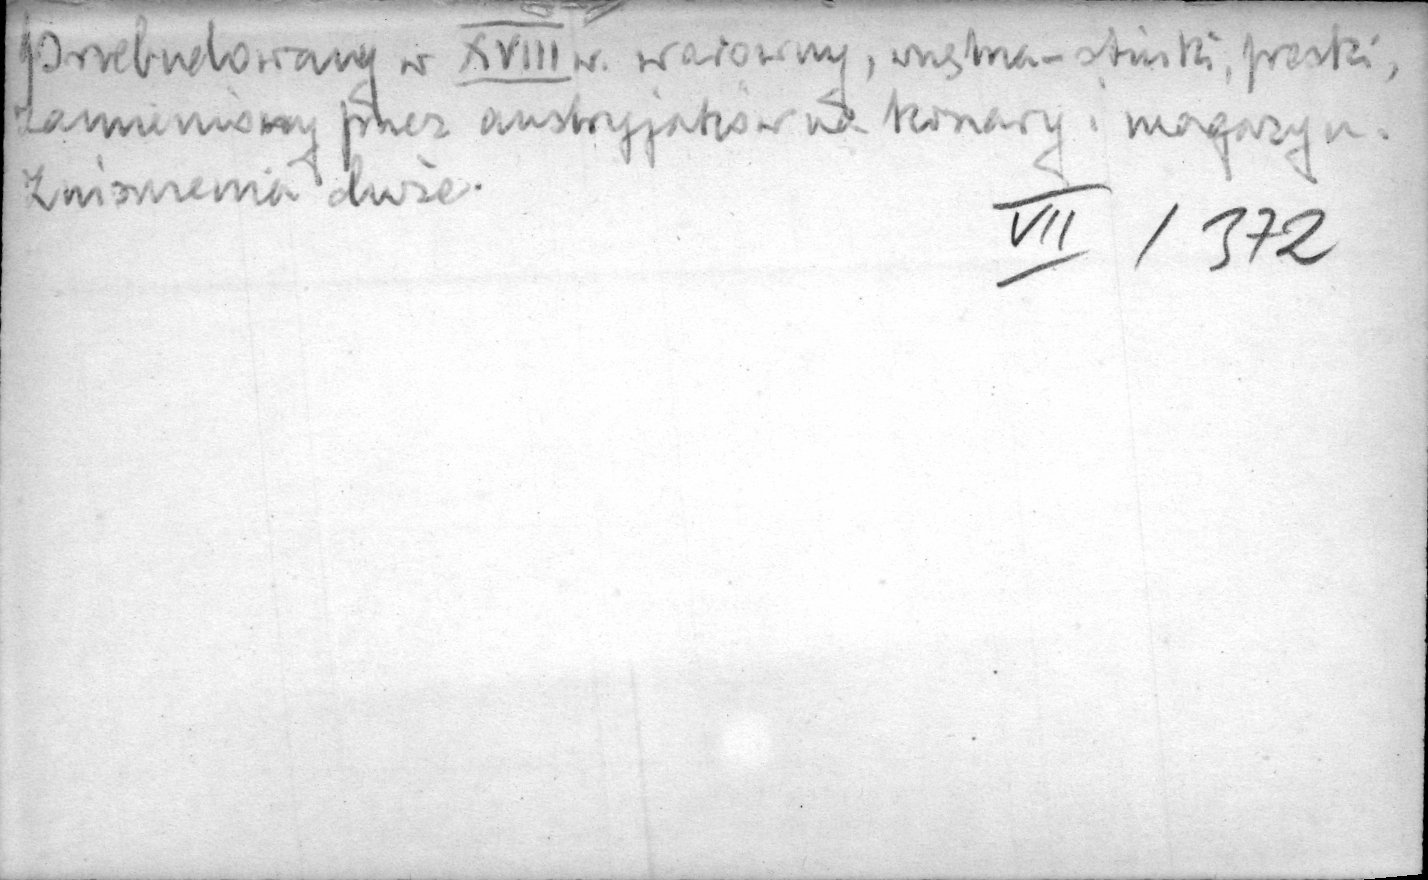 Przebudowany w XVIII w. warowny, wnętrza - stiuki, freski,
zamieniony przez austryjaków na koszary i magazyn.
Zniszczenia duże.
VII / 372